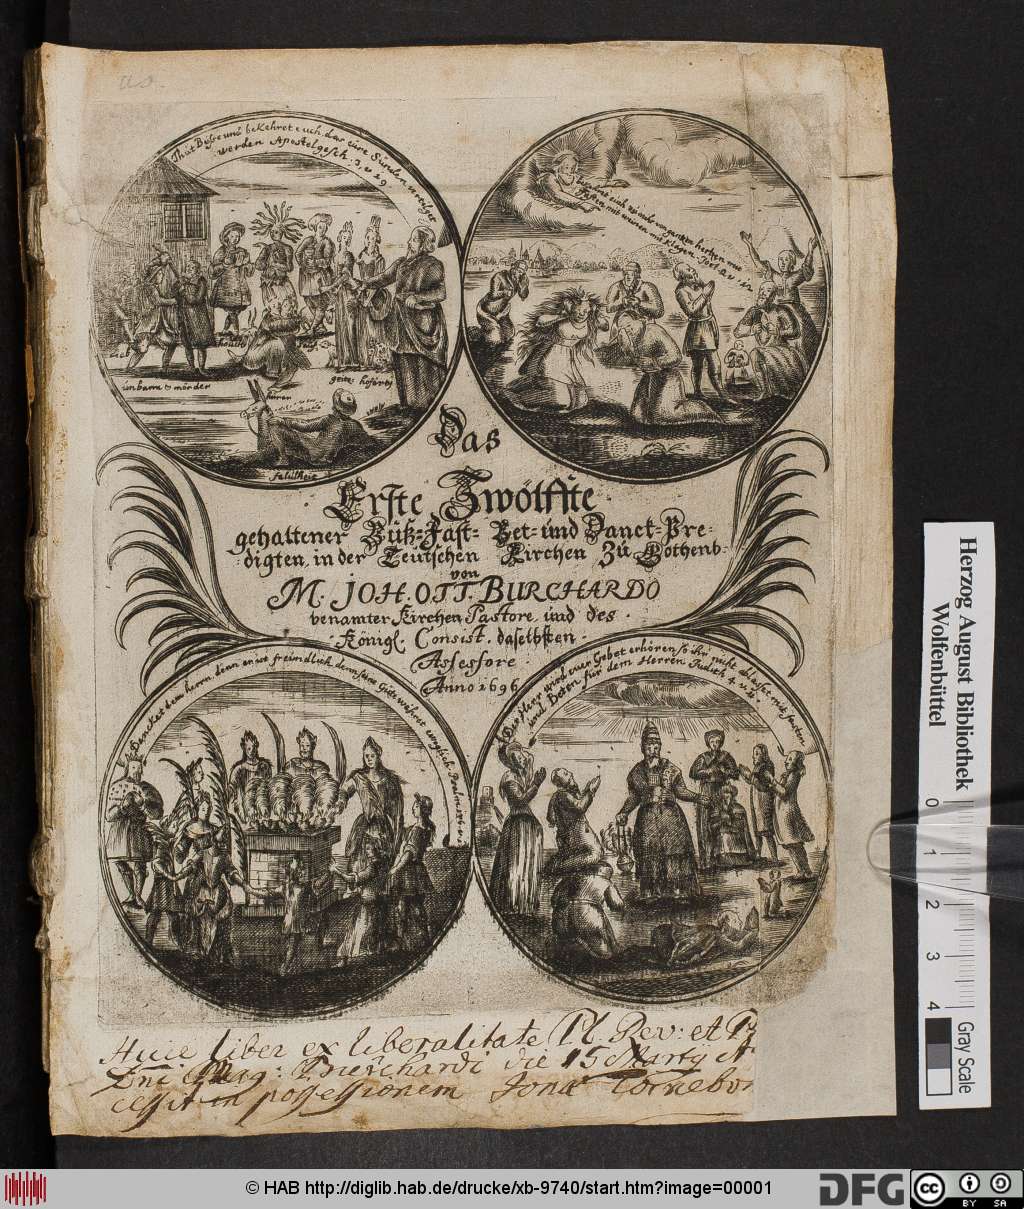 Thut Busse und bekehret euch das eure Sünden vertilget
werden Apostelgesch: 3. v. 19
mörder
geitz hofärtj
huren
falscheit
mit weinen und klagen Joel 2 v. 12
Das
Erste Zwölffte
gehaltener Büß-Fast- Bet- und Danck-Pre-
digten in der Teutschen Kirchen Zu Gothenb.
von
M. JOH. OTT. BURCHARDO
benamter Kirchen Pastore und des
Königl. Consist. daselbsten
Assessore
Anno 1696
Dancket dem herrn denn er ist freundlich denn seine Güte wehret ewiglich Psalm
Der Herr wird euer Gebet erhören so ihr nicht ablasset mit fasten
und Beten für dem Herren Judith 4. v.
Huic liber ex liberalitate Pl. Rev: et
Dni Mag: Burchardi die 15 Martij
cessit in possessionem Jonæ
Herzog August Bibliothek
Wolfenbüttel
0 1 2 3 4
Gray Scale
© HAB http://diglib.hab.de/drucke/xb-9740/start.htm?image=00001
DFG
cc BY SA